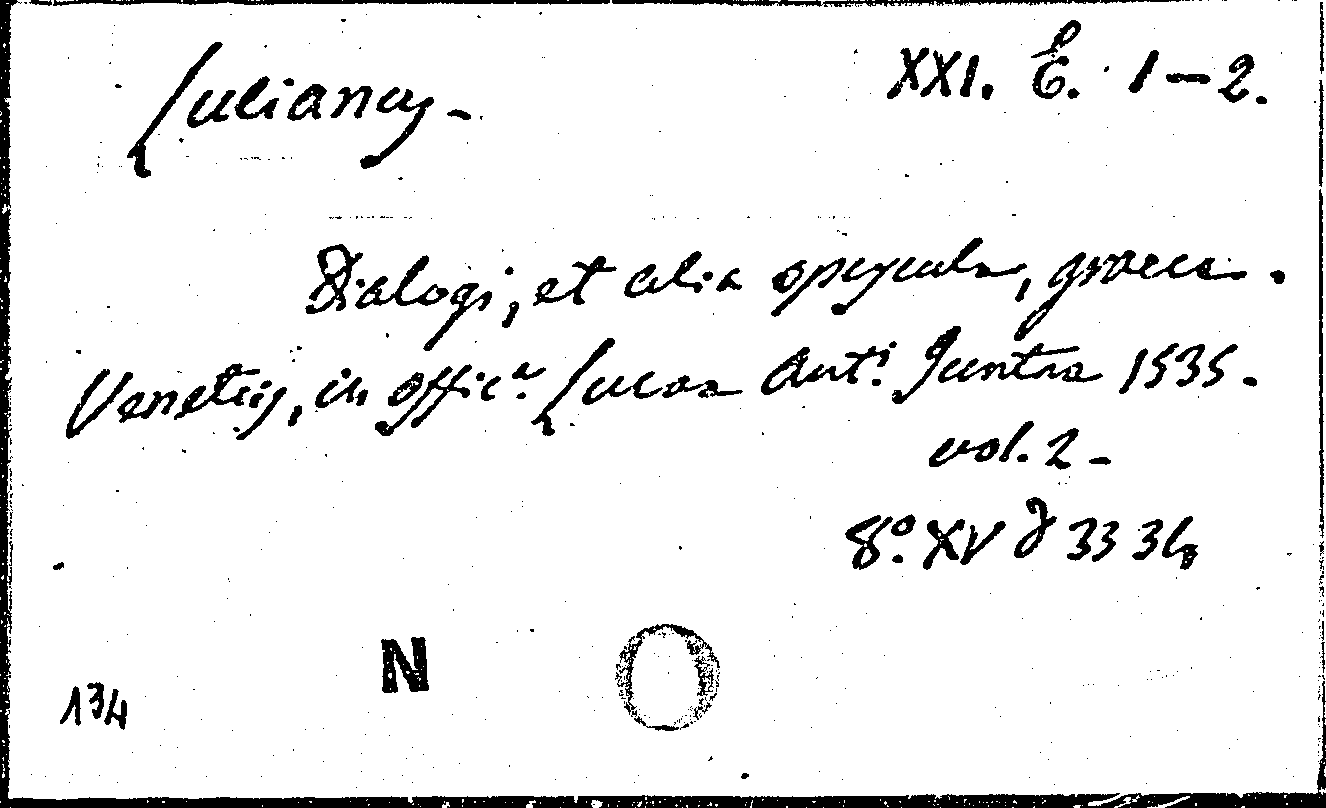 Lucianus - XXI. E. 1-2.
Dialogi, et alia opuscula, graeca.
Venetiis, in offic.a Lucae Ant.i Juntae 1535.
vol. 2 -
8.° XV 33 34
N
134